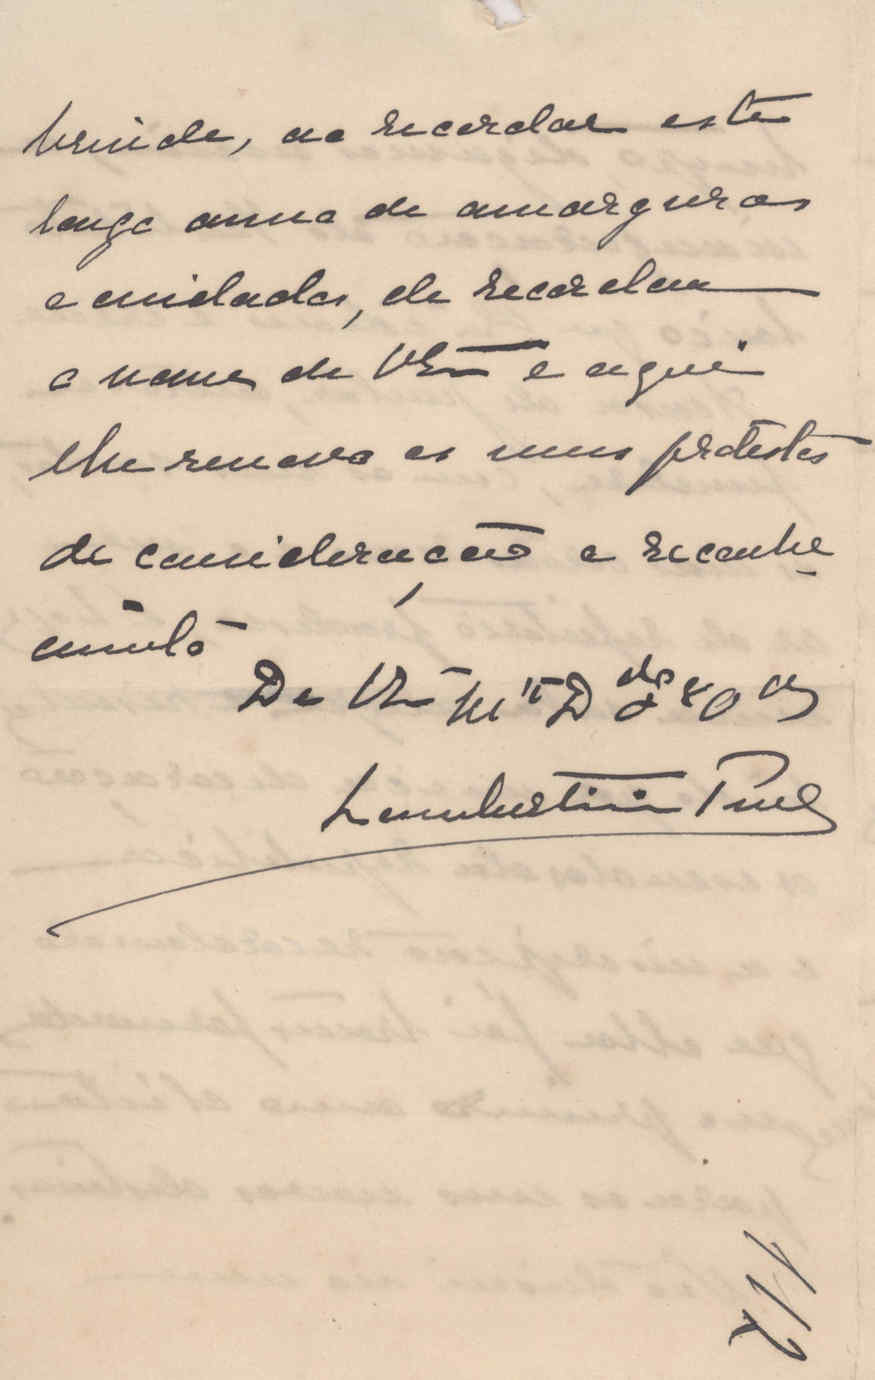 brinde, ao recordar este
longo anno de amarguras
e cuidados, de recordar
o nome de VExª e aqui
lhe renovo os meus protestos
de consideração e reconhe-
cimento
De VExª Mtº
Lambertini Pinto
112